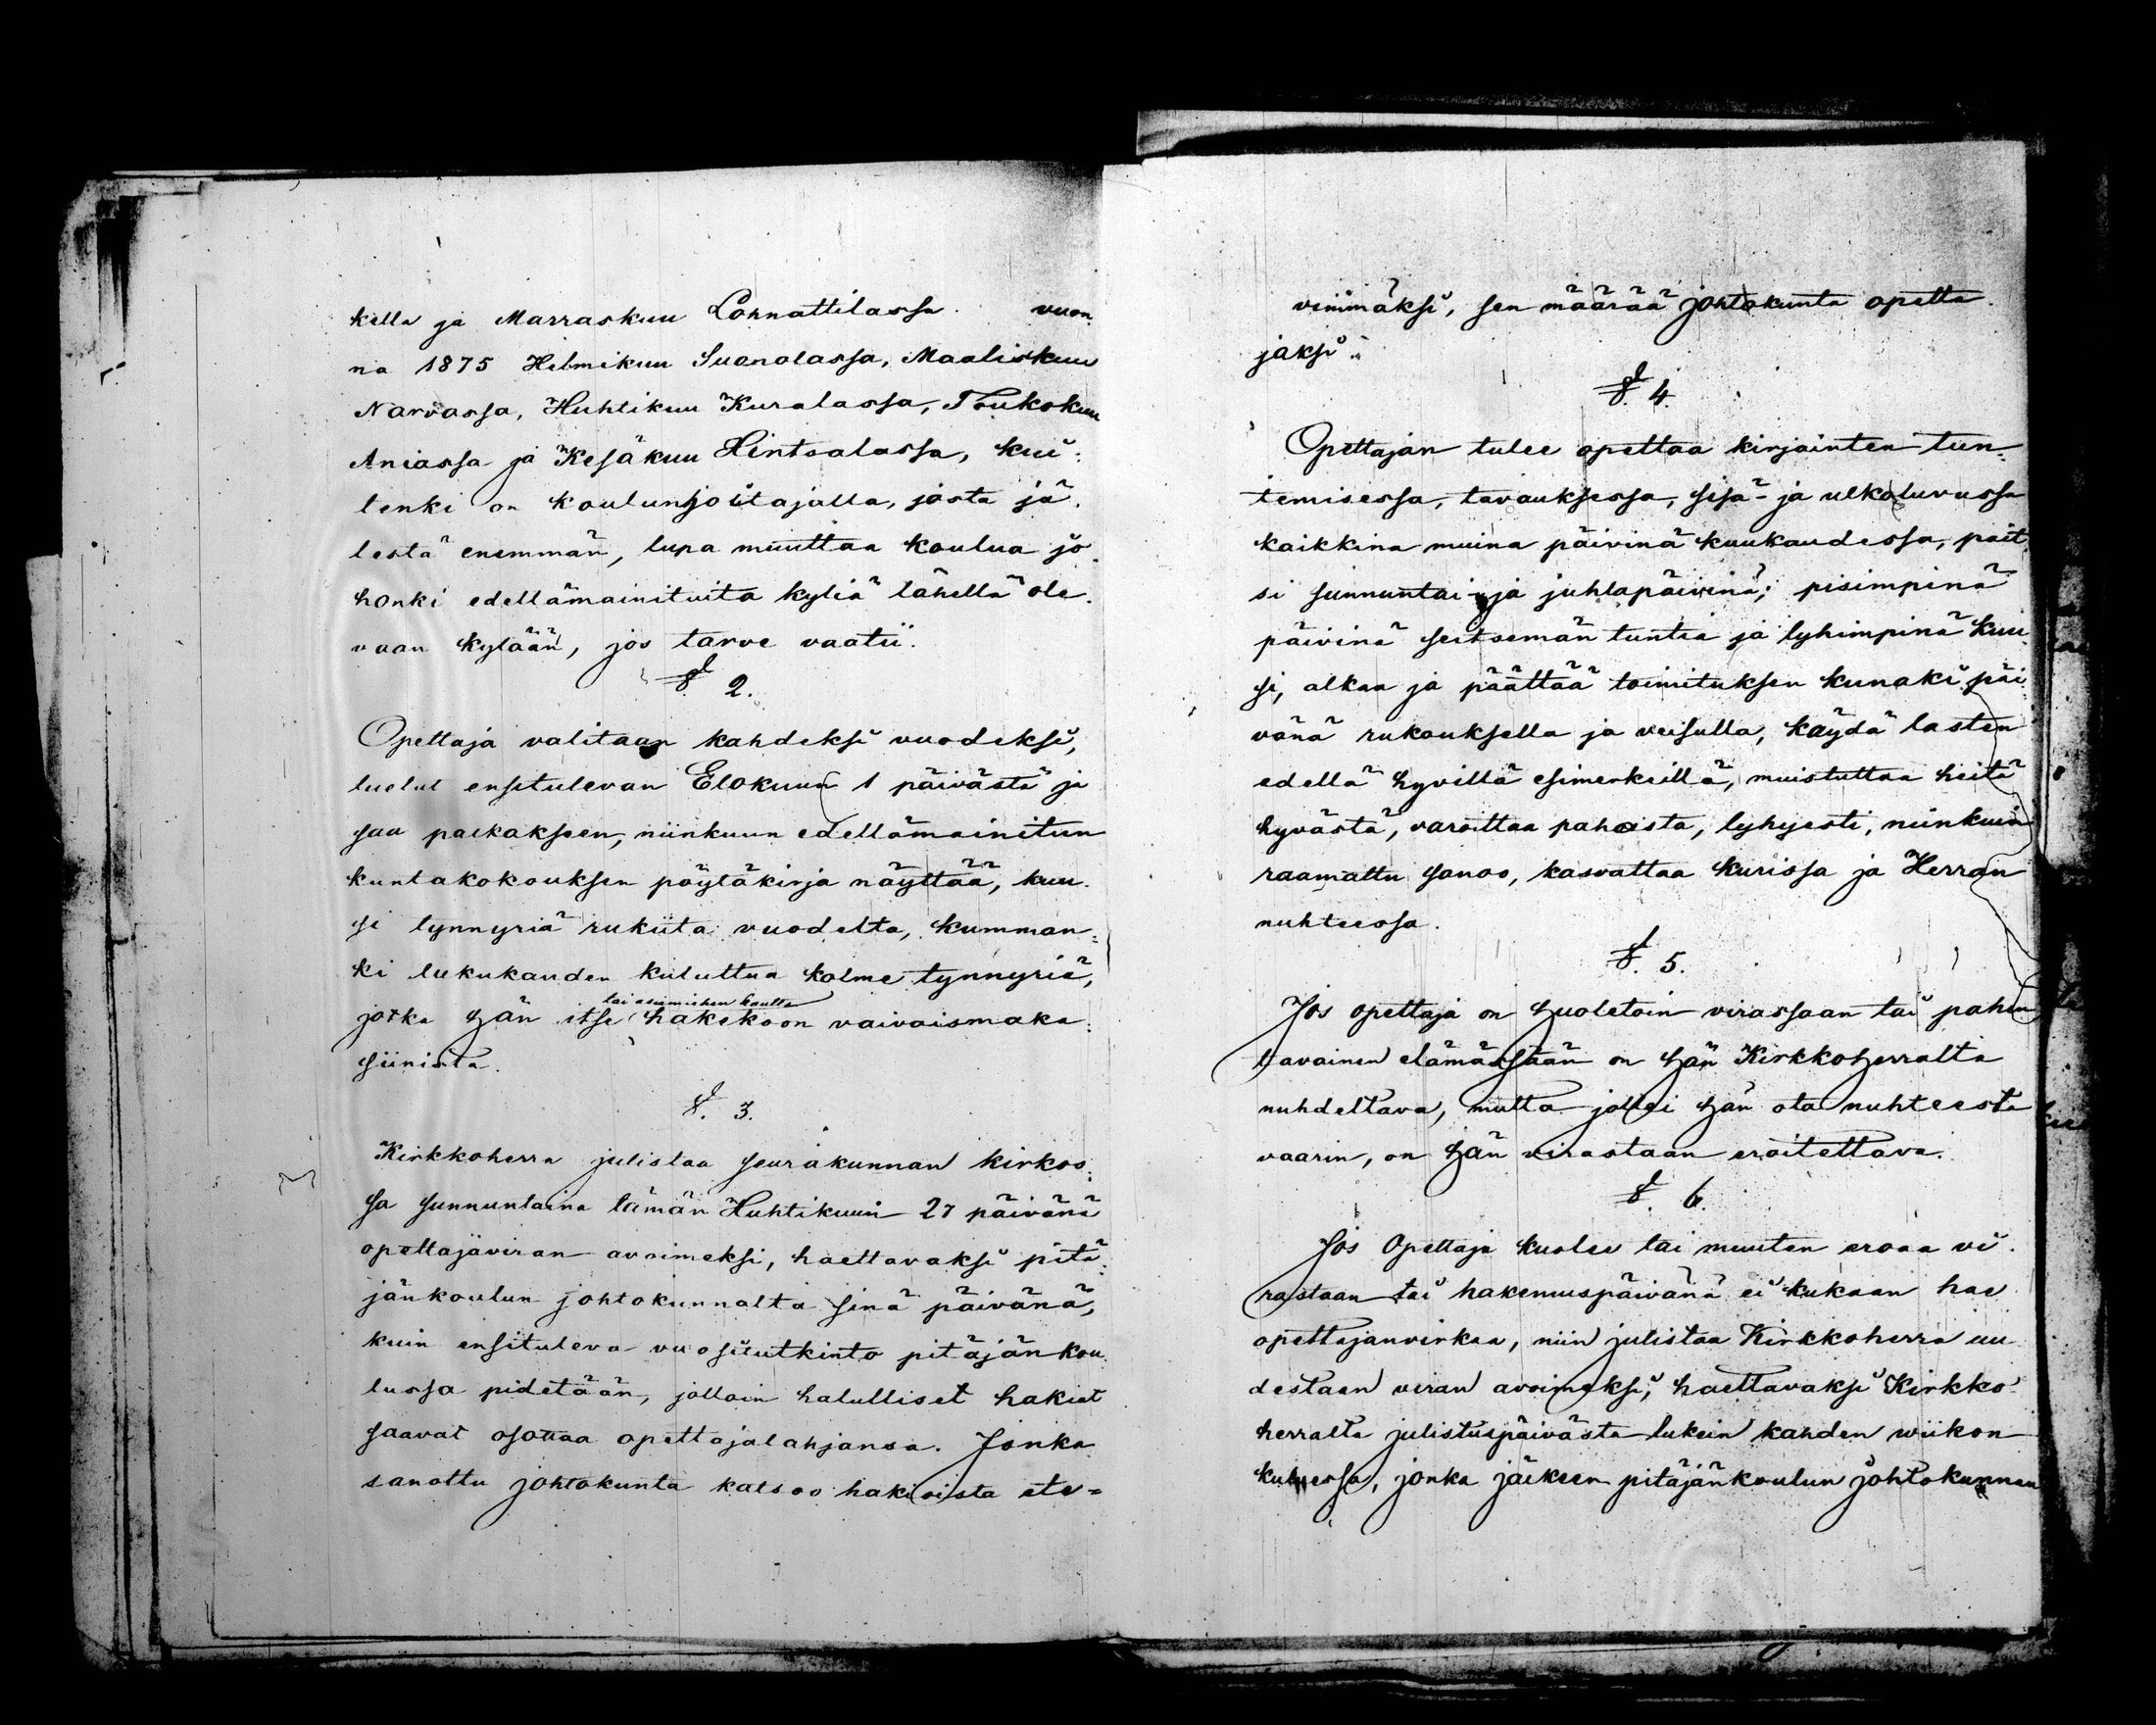 kella ja Marraskuu Lonnattilassa. vuon-
na 1875 Helmikuu Suonolassa, Maaliskuu
Narvassa, Huhtikuu Kuralassa, Toukokuu
Aniassa ja Kesäkuu Hintsalassa, kui-
tenki on koulunhoitajalla, josta jä-
lestä enemmän, lupa muuttaa koulua jo-
honki edellämainituita kyliä lähellä ole-
vaan kylään, jos tarve vaatii.
§ 2.
Opettaja valitaan kahdeksi vuodeksi,
luetut ensitulevan Elokuun 1 päivästä ja
saa palkakseen, niinkuun edellämainitun
kuntakokouksen pöytäkirja näyttää, kuu-
si tynnyriä rukiita vuodelta, kumman-
ki lukukauden kuluttua kolme tynnyriä,
tai asiamiehen kautta
jotka hän itse hakekoon vaivaismaka-
siinista.
§. 3.
Kirkkoherra julistaa seurakunnan kirkos-
sa sunnuntaina tämän Huhtikuun 27 päivänä
opettajaviran avoimeksi, haettavaksi pitä-
jänkoulun johtokunnalta sinä päivänä,
kuin ensituleva vuositutkinto pitäjänkou-
lussa pidetään, jolloin halulliset hakiat
saavat osottaa opettajalahjansa. Jonka
sanottu johtokunta katsoo hakioista ete-
vimmäksi, sen määrää johtokunta opetta-
jaksi.
§. 4.
Opettajan tulee opettaa kirjainten tun-
temisessa, tavauksessa, sisä- ja ulkoluvussa
kaikkina muina päivinä kuukaudessa, pait-
si sunnuntai- ja juhlapäivinä; pisimpinä
päivinä seitsemän tuntia ja lyhimpinä kuu-
si, alkaa ja päättää toimituksen kunaki päi-
vänä rukouksella ja veisulla, käydä lasten
edellä hyvillä esimerkeillä, muistuttaa heitä
hyvästä, varoittaa pahasta, lyhyesti, niinkuin
raamattu sanoo, kasvattaa kurissa ja Herran
nuhteessa.
§. 5.
Jos opettaja on huoletoin virassaan tai pahen-
tavainen elämässään on hän Kirkkoherralta
nuhdeltava, mutta jollei hän ota nuhteesta
vaarin, on hän virastaan eroitettava.
§. 6.
Jos Opettaja kuolee tai muuten eroaa vi-
rastaan tai hakemuspäivänä ei kukaan hae
opettajanvirkaa, niin julistaa Kirkkoherra uu-
destaan viran avoimeksi, haettavaksi Kirkko-
herralta julistuspäivästä lukein kahden wiikon
kuluessa, jonka jälkeen pitäjänkoulun johtokunnan